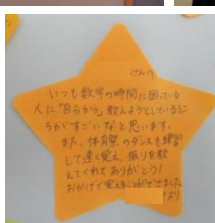 さんへ
いつも数学の時間に困っている
人に「自分から」教えようとしているとこ
ろがすごいなと思います。
また、体育祭のダンスも練習
して速く覚え、振りを教
えてくれてありがとう!
おかげで覚えることができました。
より